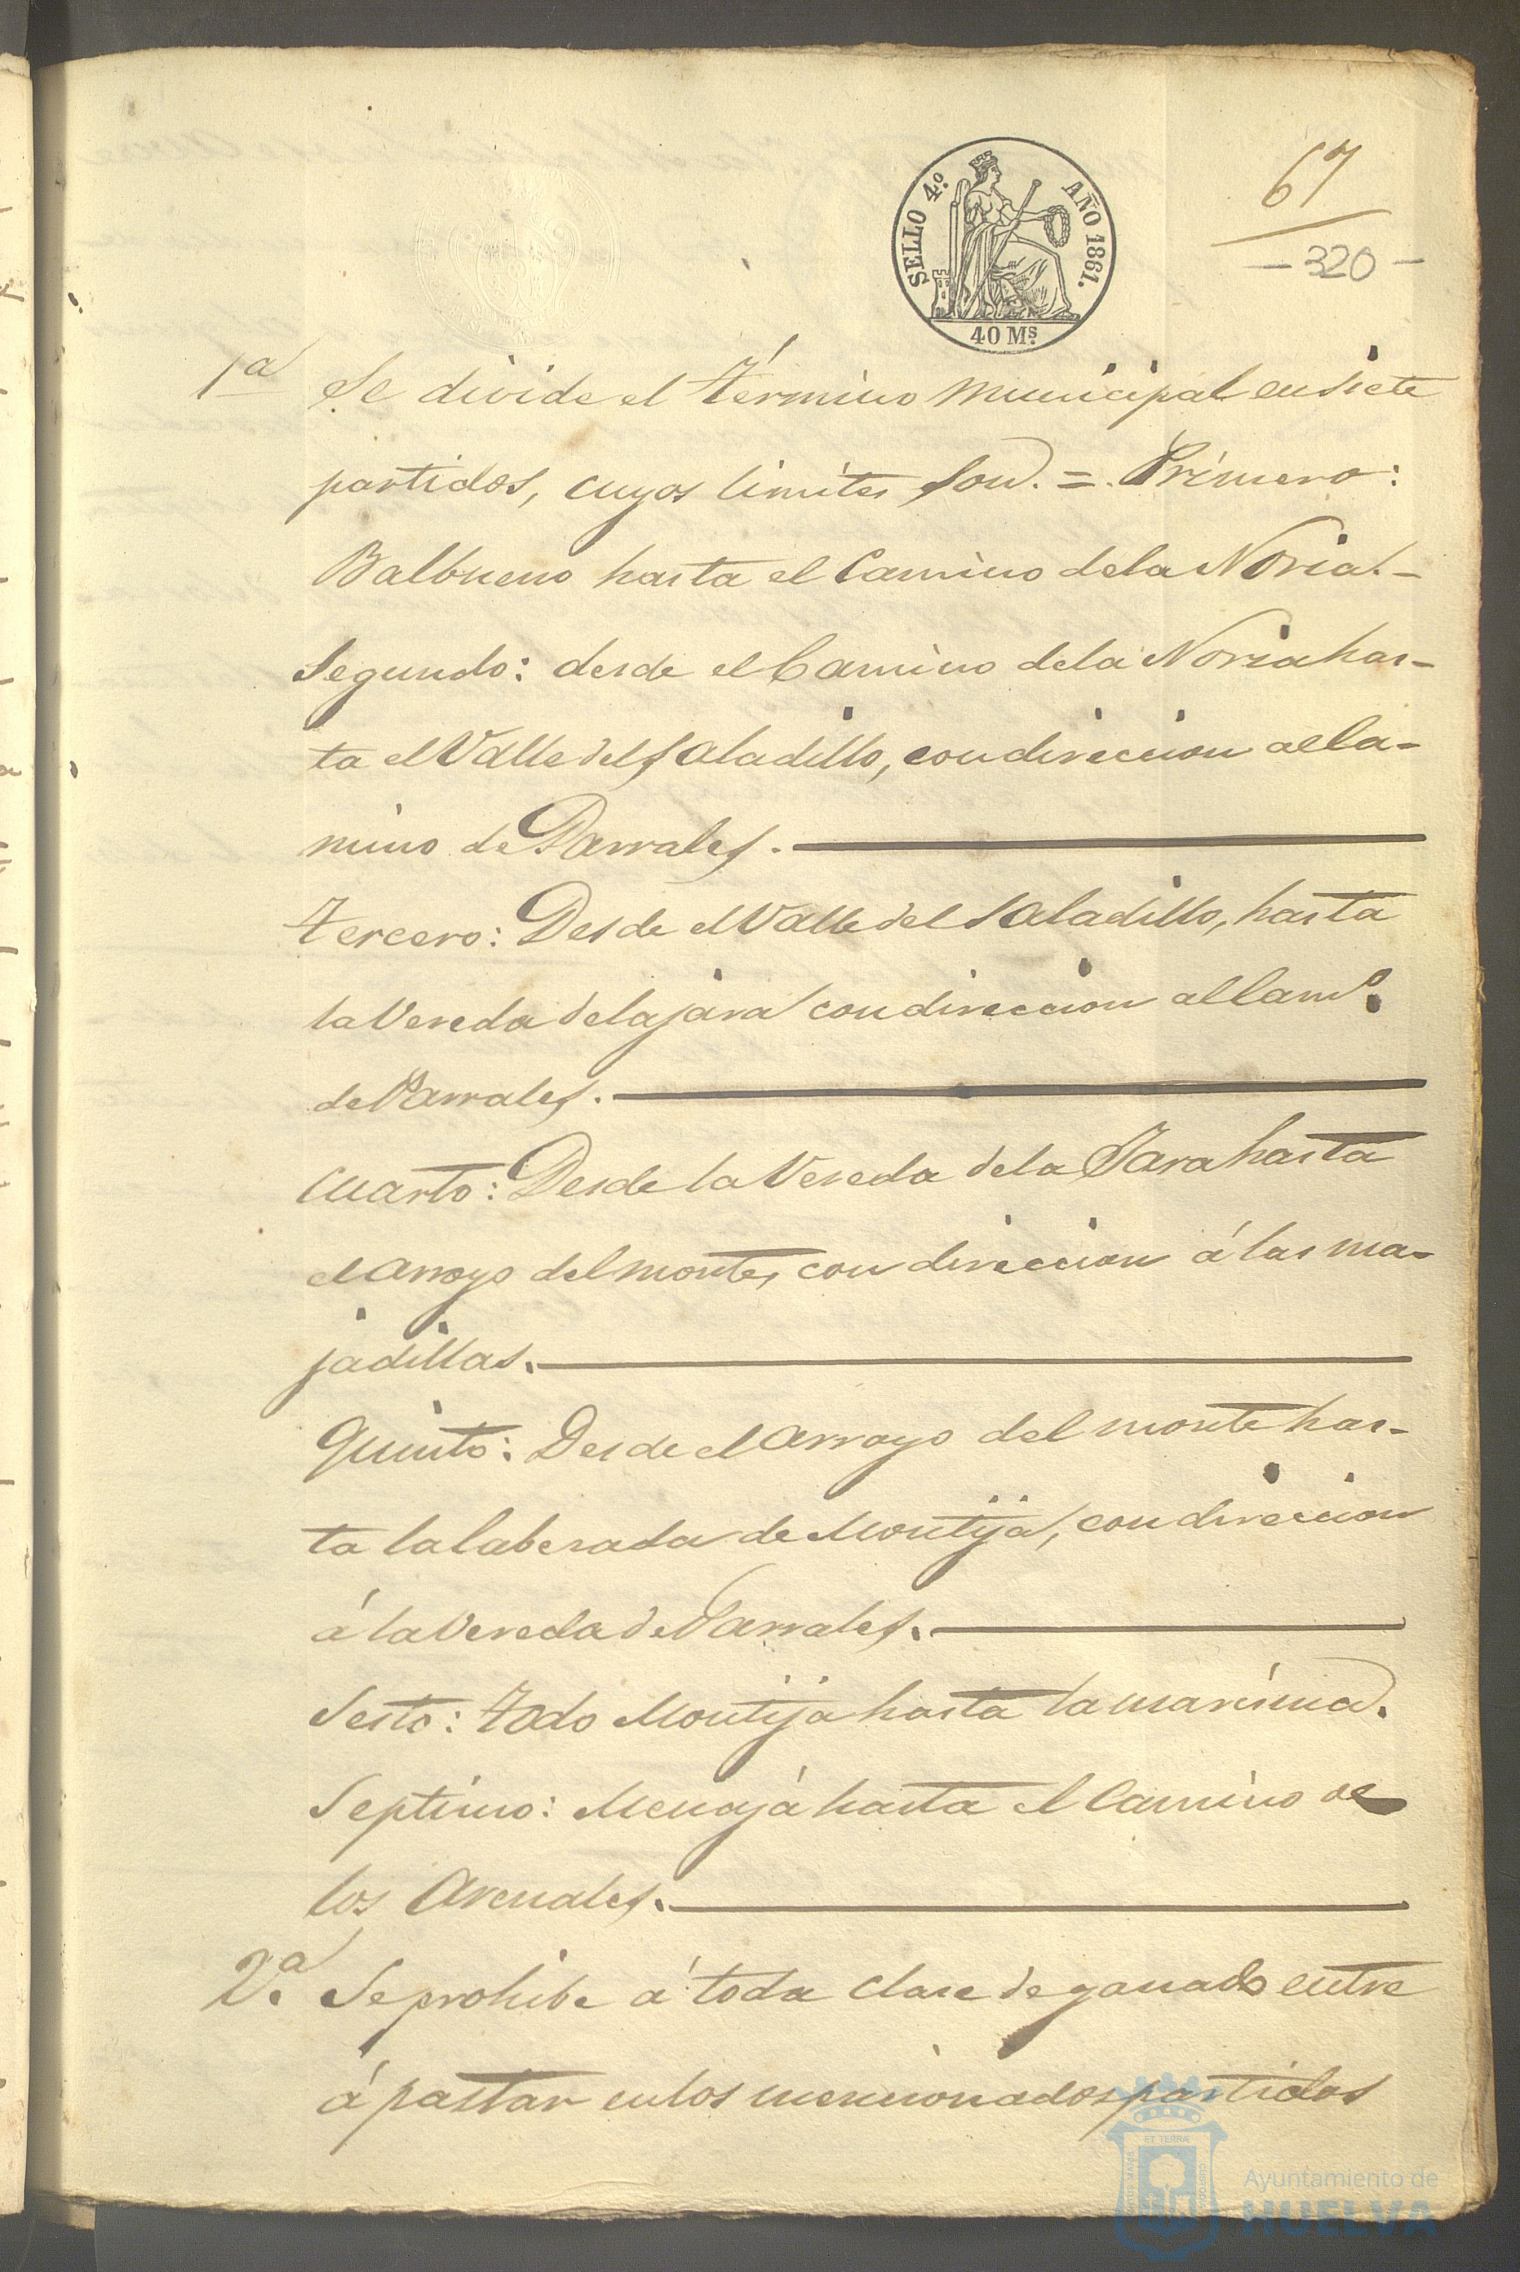 SELLO 4.º AÑO 1861.
40 Ms.
67
- 320 -
1ª Se divide el término municipal en siete
partidos, cuyos limites son. = Primero:
Balbueno hasta el Camino de la Noria. -
Segundo: desde el Camino de la Noria has-
ta el Valle del Saladillo, con direccion al Ca-
mino de Parrales.
Tercero: Desde el Valle del Saladillo, hasta
la Vereda de la jara con direccion al Camº.
de Parrales.
Cuarto: Desde la Vereda de la Jara hasta
el arroyo del monte, con direccion á las ma-
jadillas.
Quinto: Desde el arroyo del monte has-
ta la laberada de Montija, con direccion
á la Vereda de Parrales.
Sesto: todo Montija hasta la marisma.
Septimo: Menaja hasta el Camino de
los Arenales.
2.ª Se prohibe á toda clase de ganado entre
á pastar en los mencionados partidos
Ayuntamiento de
HUELVA